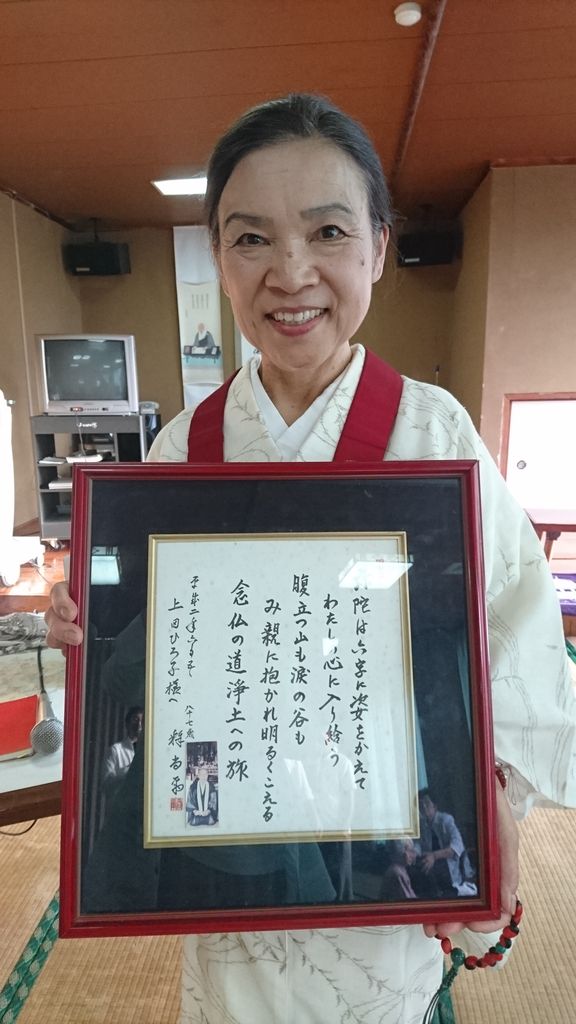 陀は六字に姿をかえて
わたしの心に入り給う
腹立つ山も涙の谷も
み親に抱かれ明るくこえる
念仏の道浄土への旅
平成二年六月
上田ひろ子様へ
八十七歳